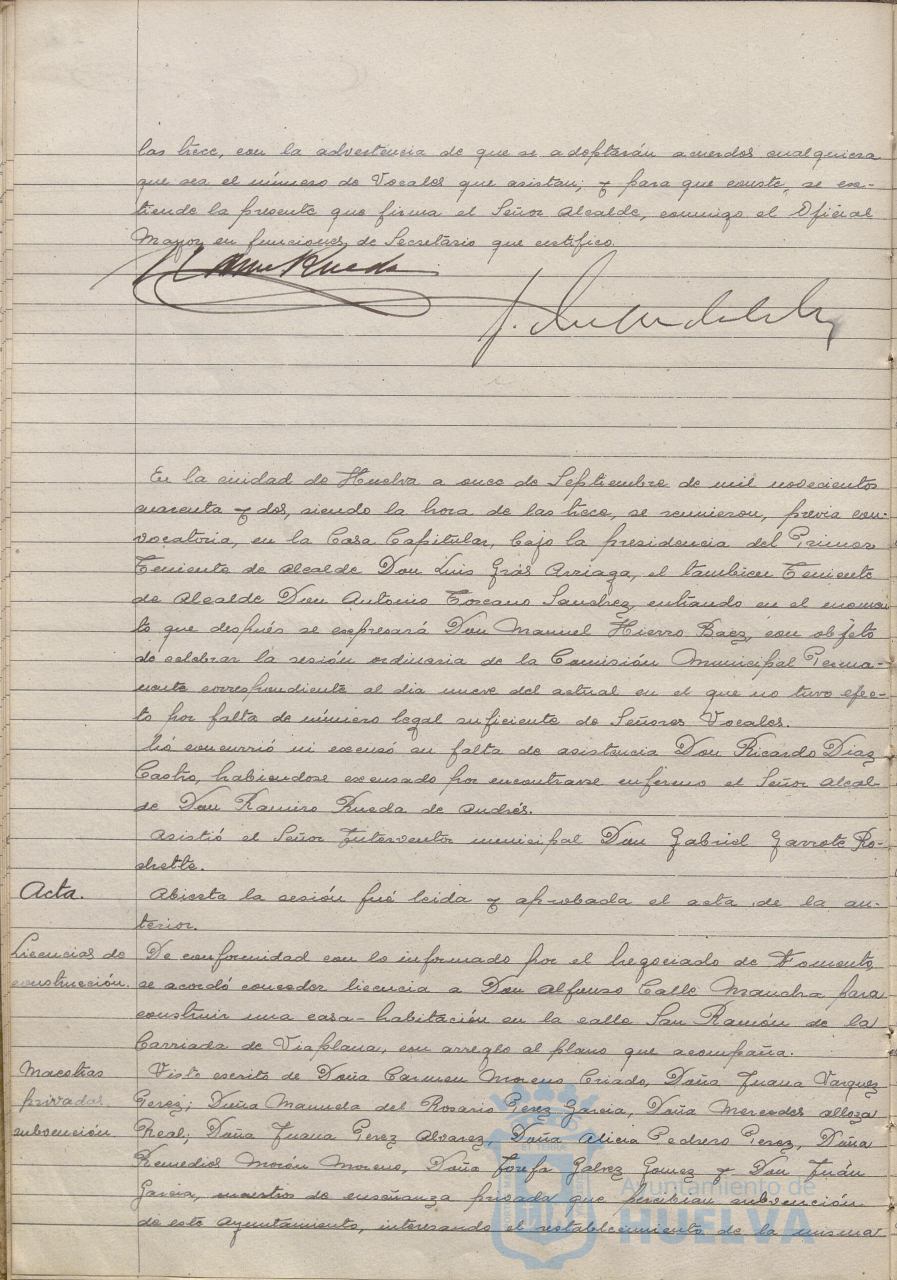 las trece, con la advertencia de que se adoptarán acuerdos cualquiera
que sea el número de Vocales que asistan; y para que conste, se ex-
tiende la presente que firma el Señor Alcalde, conmigo el Oficial
Mayor en funciones de Secretario que certifico.
Rueda
En la ciudad de Huelva a once de Septiembre de mil novecientos
cuarenta y dos, siendo la hora de las trece, se reunieron, previa con-
vocatoria, en la Casa Capitular, bajo la presidencia del Primer
Teniente de Alcalde Don Luis Grás Arriaga, el tambien Teniente
de Alcalde Don Antonio Toscano Sanchez, entrando en el momen
to que después se expresará Don Manuel Hierro Baez, con objeto
de celebrar la sesión ordinaria de la Comisión Municipal Perma-
nente correspondiente al dia nueve del actual en el que no tuvo efec-
to por falta de número legal suficiente de Señores Vocales.
No concurrió ni excusó su falta de asistencia Don Ricardo Diaz
Castro, habiendose excusado por encontrarse enfermo el Señor Alcal-
de Don Ramiro Rueda de Andrés.
Asistió el Señor Interventor municipal Don Gabriel Garrote Ro-
chette.
Acta.
Abierta la sesión fué leida y aprobada el acta de la an-
terior.
Licencias de
construcción.
De conformidad con lo informado por el Negociado de Fomento,
se acordó conceder licencia a Don Alfonso Calle Mancha para
construir una casa-habitación en la calle San Ramón de la
Barriada de Viaplana, con arreglo al plano que acompaña.
Maestras
privadas
subvención.
Visto escrito de Doña Carmen Moreno Criado, Doña Juana Vazquez
Perez; Doña Manuela del Rosario Perez Garcia, Doña Mercedes Alloza
Real, Doña Juana Perez Alvarez, Doña Alicia Pedrero Perez, Doña
Remedios Morón Moreno, Doña Josefa Galvez Gomez y Don Juán
Garcia, maestros de enseñanza privada que percibian subvención
de este Ayuntamiento, interesando el restablecimiento de la misma
Ayuntamiento de
HUELVA